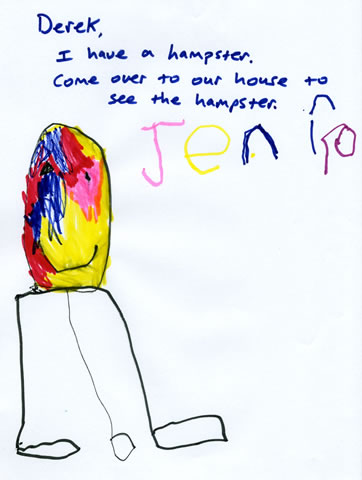 Derek,
I have a hampster.
Come over to our house to
see the hampster.
Jen